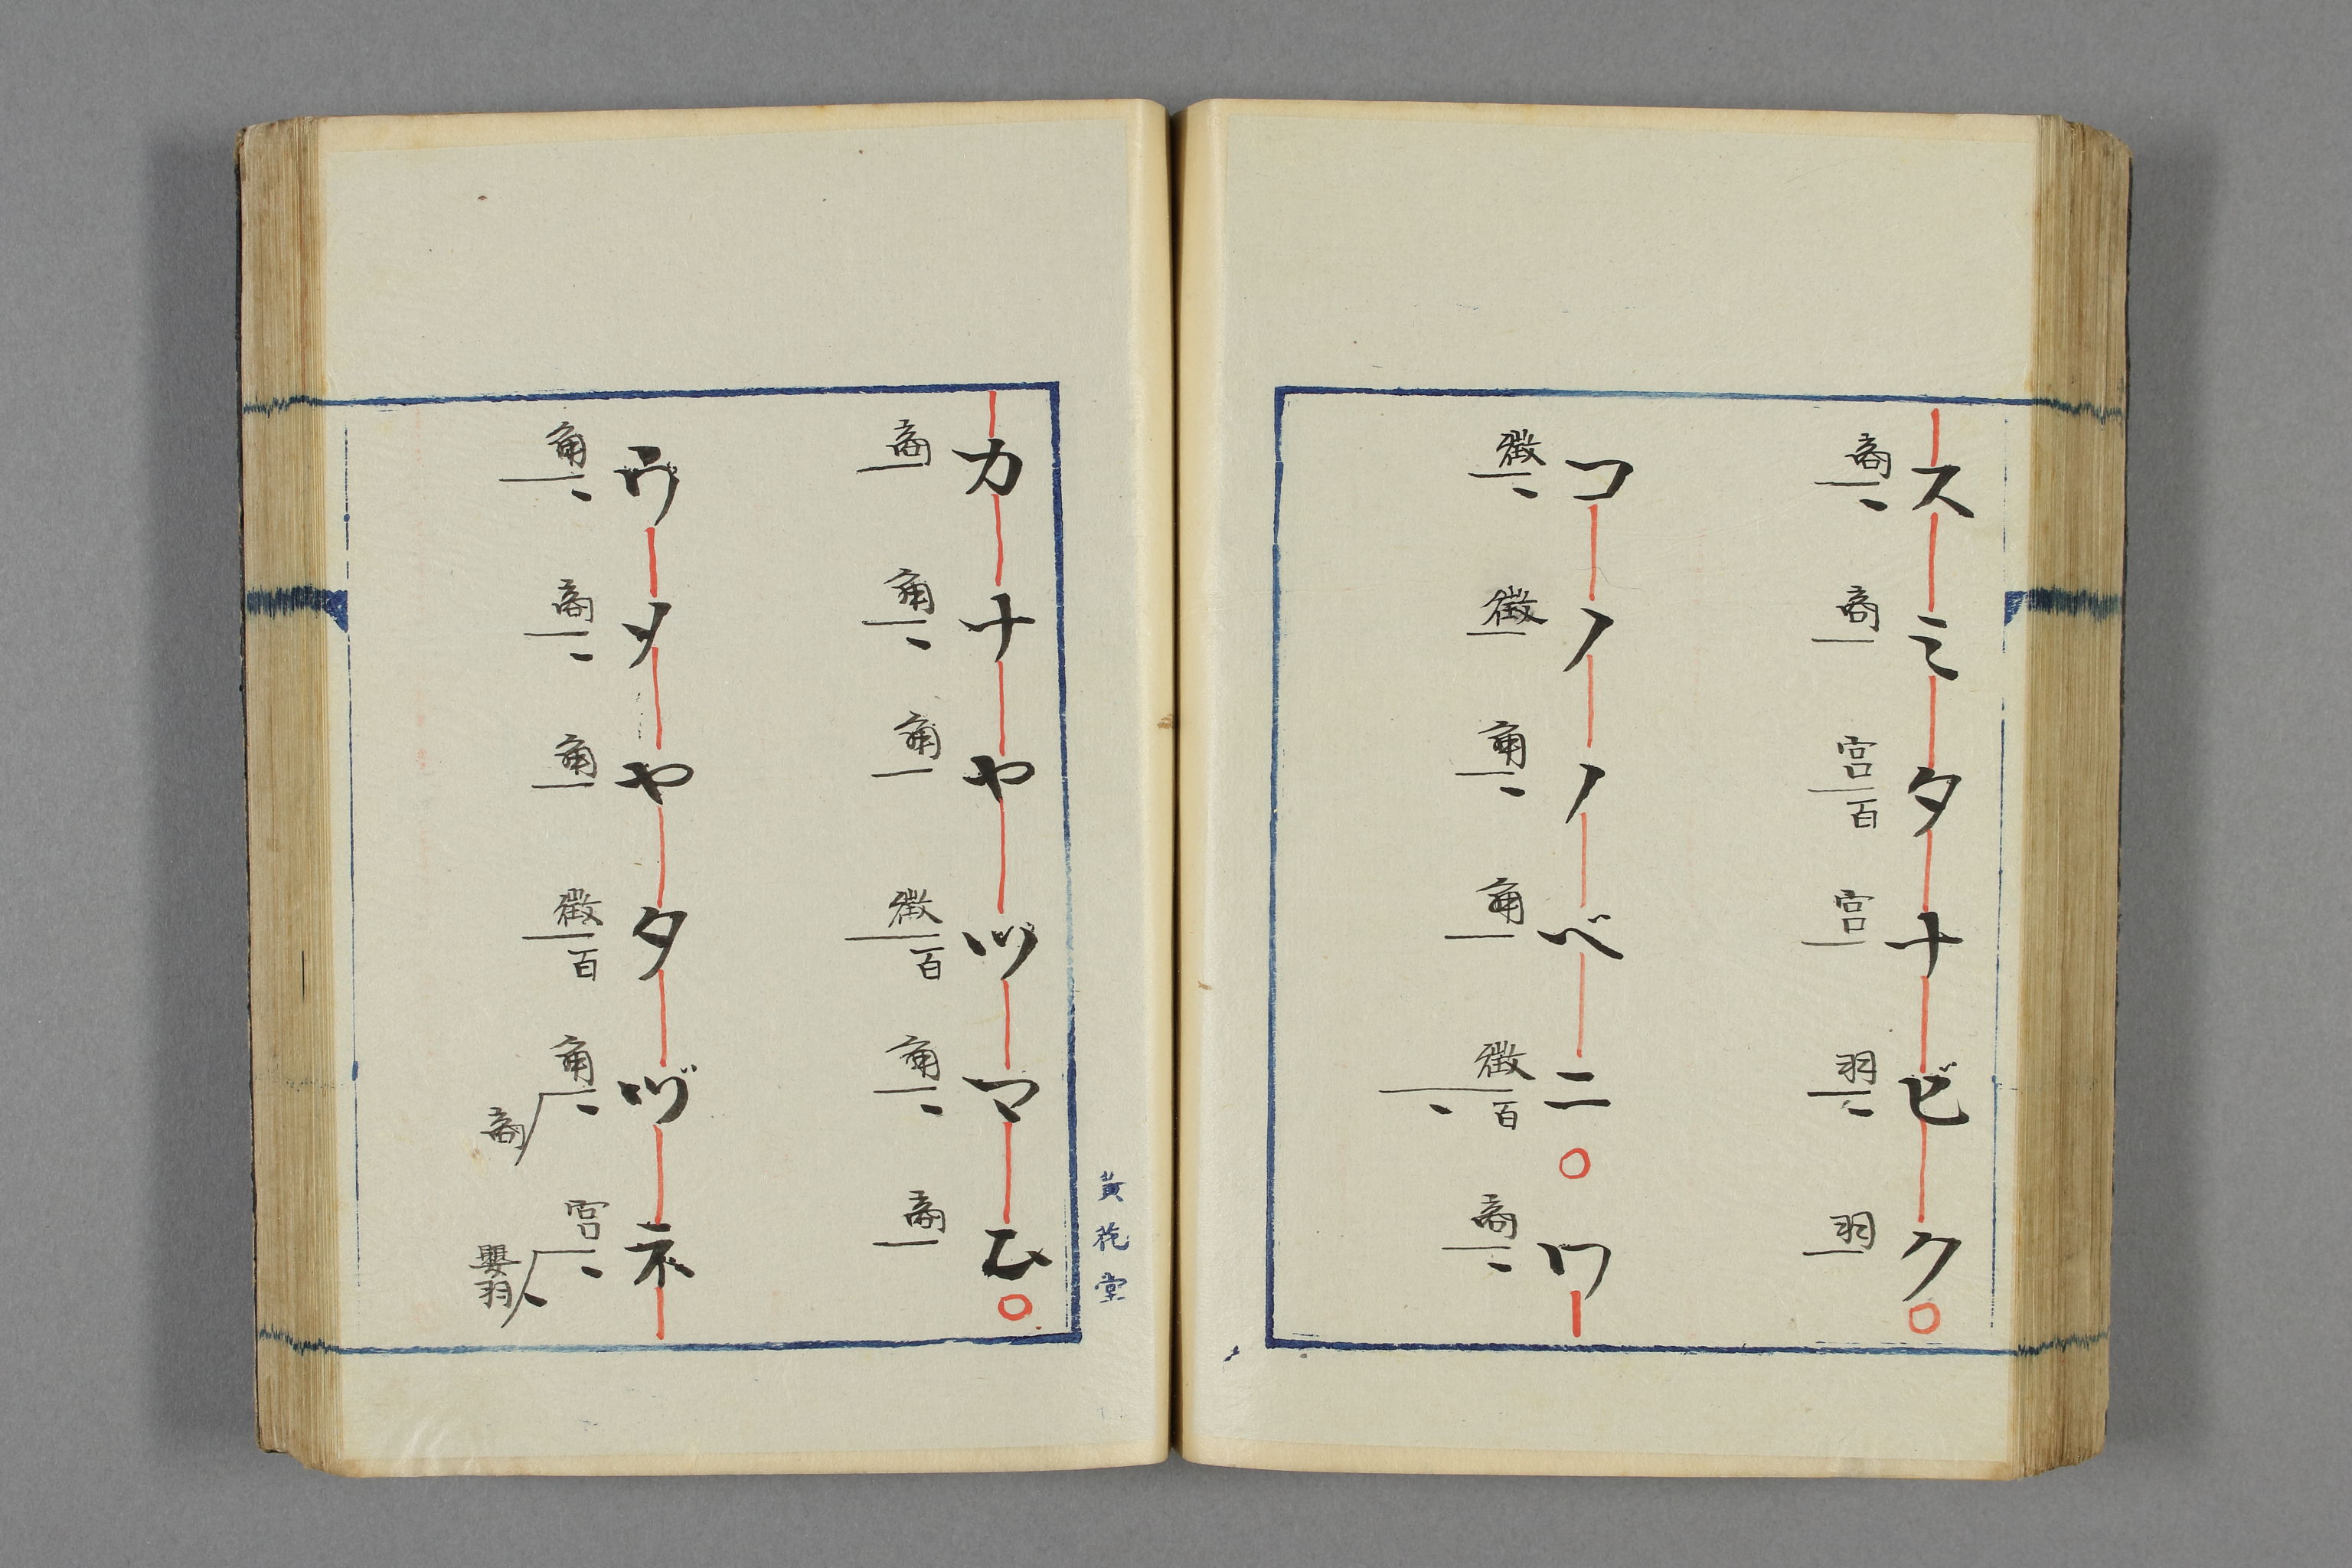 スミタナビク
商 商 宮百 宮 羽 羽
コノノベニ○ワ
徴 徴 角 角 徴百 商
カナヤツマ
商 角 角 徴百 角 商
黄花堂
ウヤタヅネ
角 商 角 徴百 角商 宮嬰羽